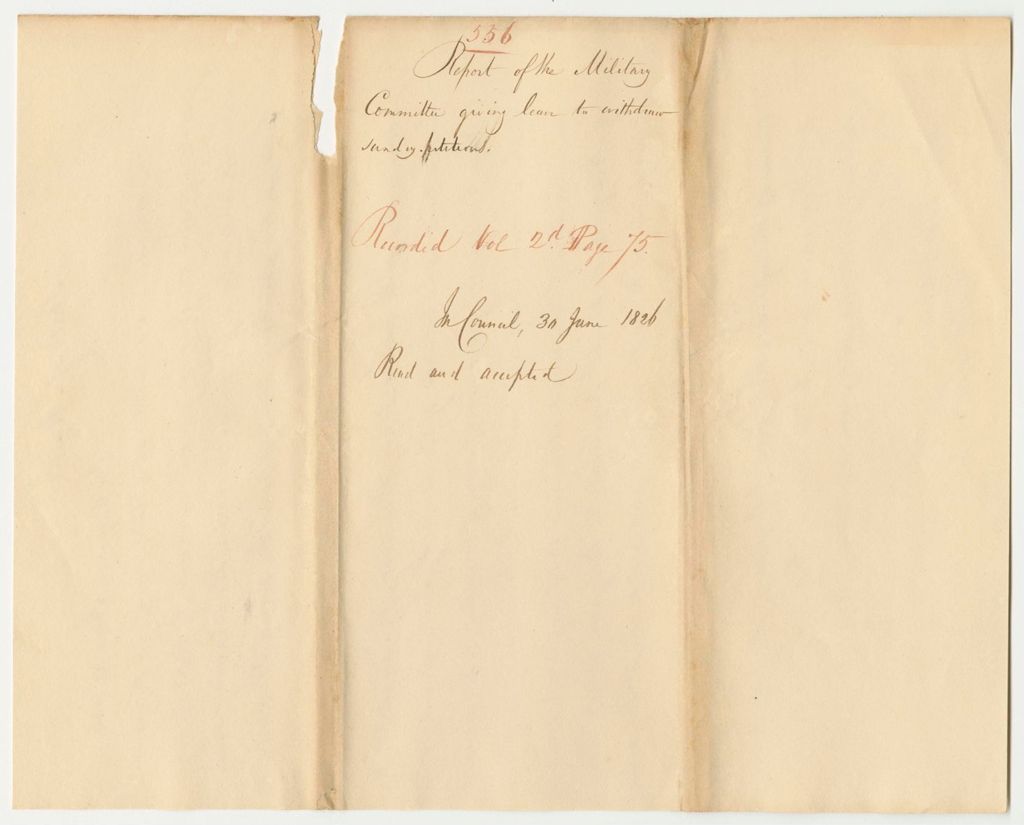 336
Report of the Military
Committee giving leave to withdraw
sundry petitions.
Recorded Vol 2d. Page 75.
In Council, 30 June 1826
Read and accepted